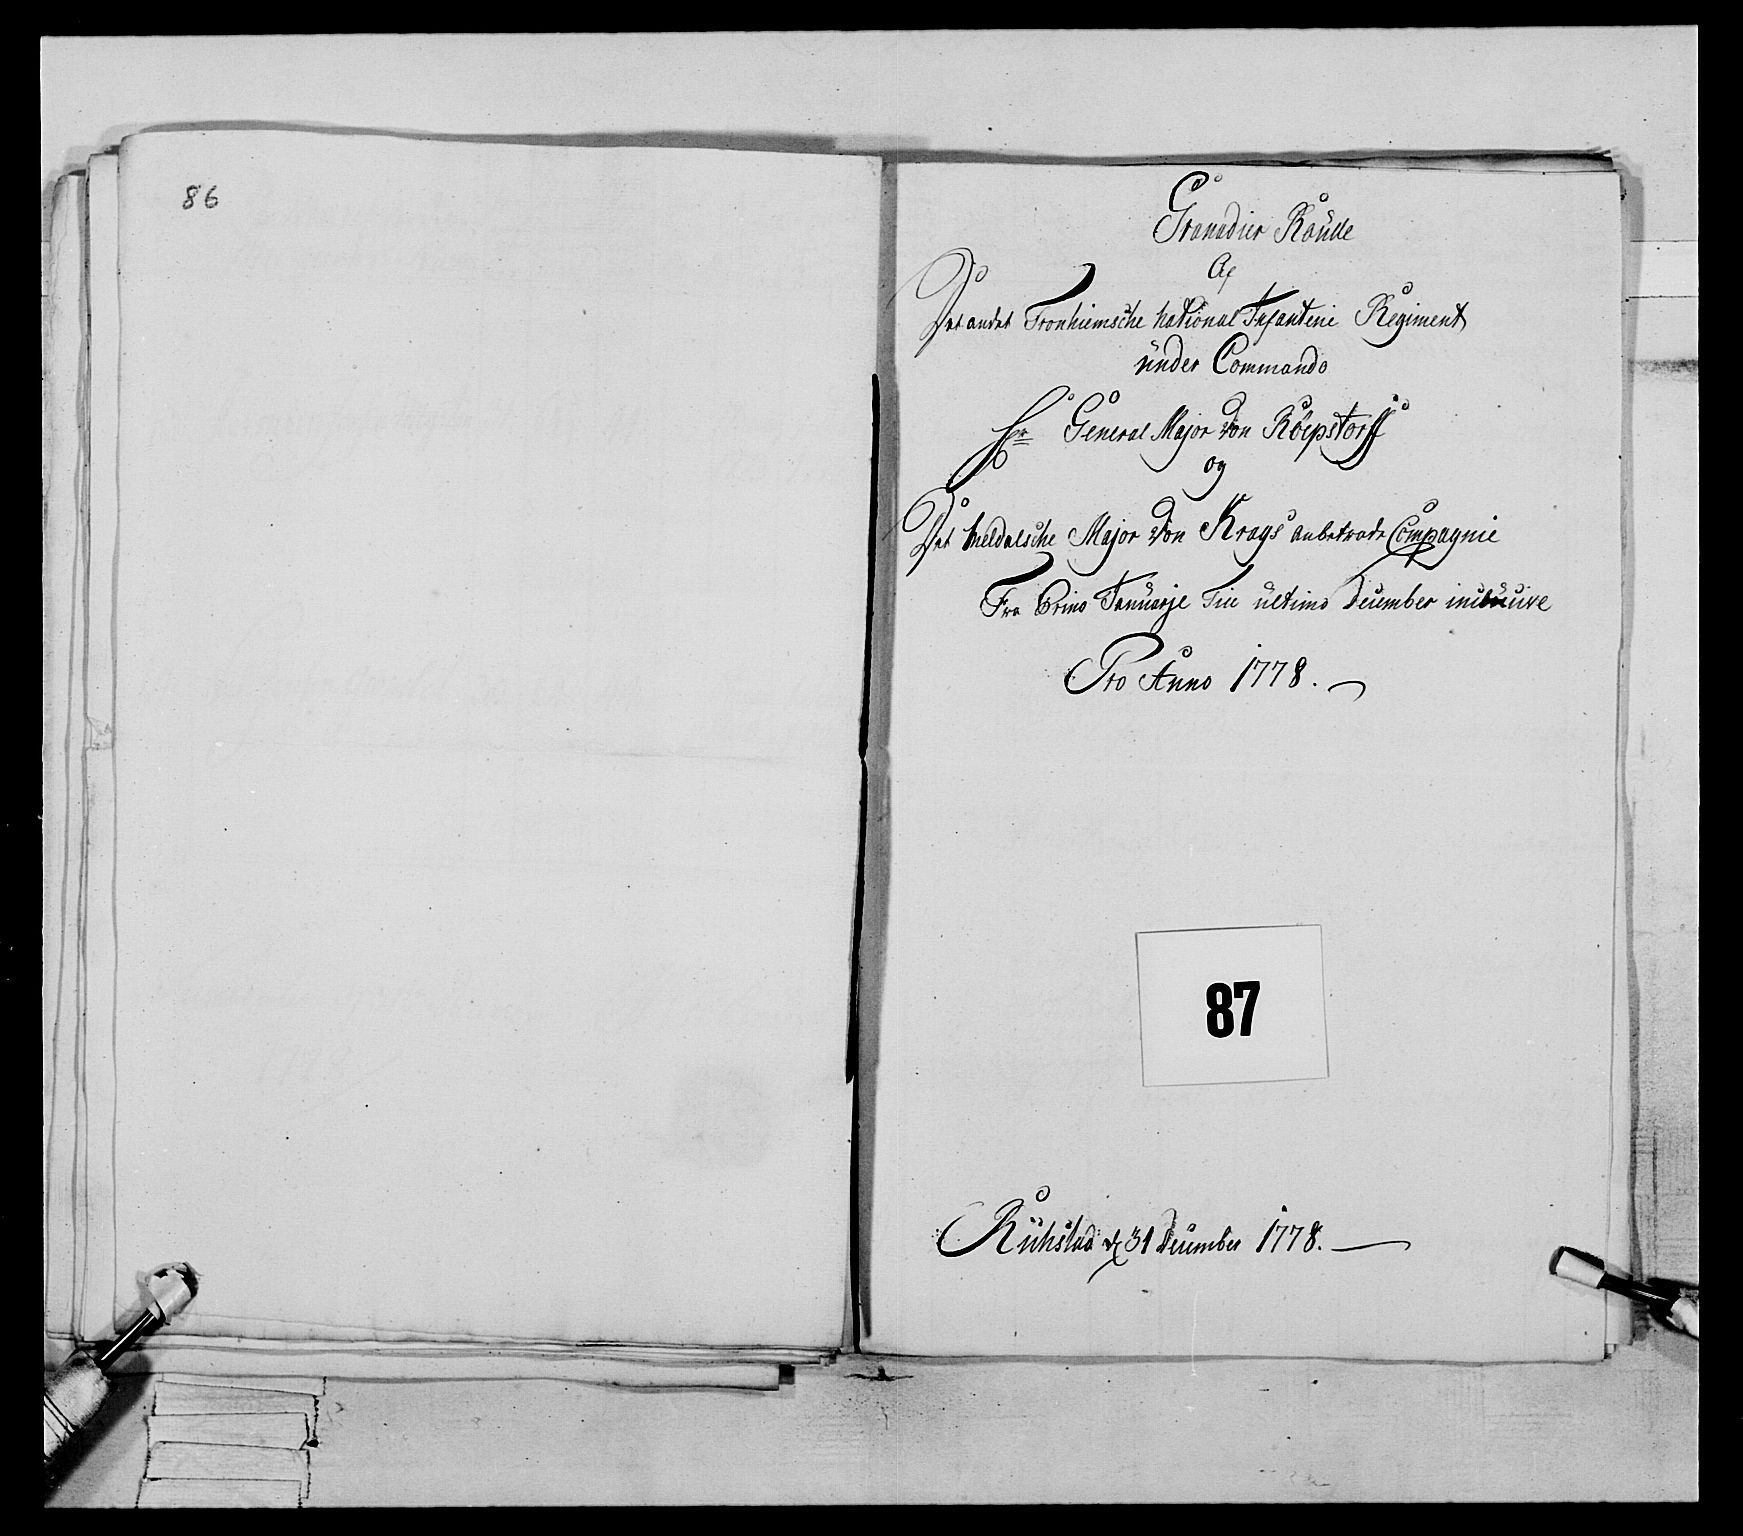 86
Granadier Roulle
Af
Det andet Tronhiemsche national Infanterie Regiment
under Commando
Hr General Major von Röepstorff
og
Det Meldalsche Major von Krags anbetrode Compagnie
Fra Primo Januarje Til ultimo December incluuive
Pro Anno 1778.
87
Ruhstad d 31 December 1778.